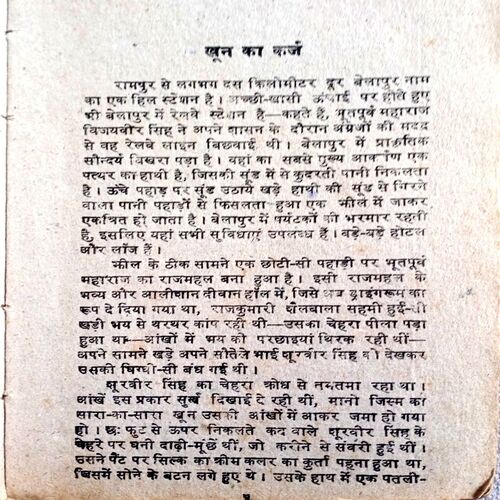 खून का कर्ज
रामपुर से लगभग दस किलोमीटर दूर बेलापुर नाम
का एक हिल स्टेशन है। अच्छी-खासी ऊंचाई पर होते हुए
भी बेलापुर में रेलवे स्टेशन है—कहते हैं, भूतपूर्व महाराज
विजयवीर सिंह ने अपने शासन के दौरान अंग्रेजों की मदद
से वह रेलवे लाइन बिछवाई थी। बेलापुर में प्राकृतिक
सौन्दर्य बिखरा पड़ा है। यहां का सबसे मुख्य आकर्षण एक
पत्थर का हाथी है, जिसकी सूंड में से कुदरती पानी निकलता
है। ऊंचे पहाड़ पर सूंड उठाये खड़े हाथी की सूंड से गिरने
वाला पानी पहाड़ों से फिसलता हुआ एक झील में जाकर
एकत्रित हो जाता है। बेलापुर में पर्यटकों की भरमार रहती
है, इसलिए यहां सभी सुविधाएं उपलब्ध हैं। बड़े-बड़े होटल
और लॉज हैं।
झील के ठीक सामने एक छोटी-सी पहाड़ी पर भूतपूर्व
महाराज का राजमहल बना हुआ है। इसी राजमहल के
भव्य और आलीशान दीवान हॉल में, जिसे अब ड्राइंगरूम का
रूप दे दिया गया था, राजकुमारी शैलबाला सहमी हुई-सी
खड़ी भय से थरथर कांप रही थी—उसका चेहरा पीला पड़ा
हुआ था—आंखों में भय की परछाइयां थिरक रही थीं—
अपने सामने खड़े अपने सौतेले भाई शूरवीर सिंह को देखकर
उसकी घिग्घी-सी बंध गई थी।
शूरवीर सिंह का चेहरा क्रोध से तमतमा रहा था।
आंखें इस प्रकार सुर्ख दिखाई दे रही थीं, मानो जिस्म का
सारा-का-सारा खून उसकी आंखों में आकर जमा हो गया
हो। छः फुट से ऊपर निकलते कद वाले शूरवीर सिंह के
चेहरे पर घनी दाढ़ी-मूछें थीं, जो करीने से संवरी हुई थीं।
उसने पैंट पर सिल्क का क्रीम कलर का कुर्ता पहना हुआ था,
जिसमें सोने के बटन लगे हुए थे। उसके हाथ में एक पतली-